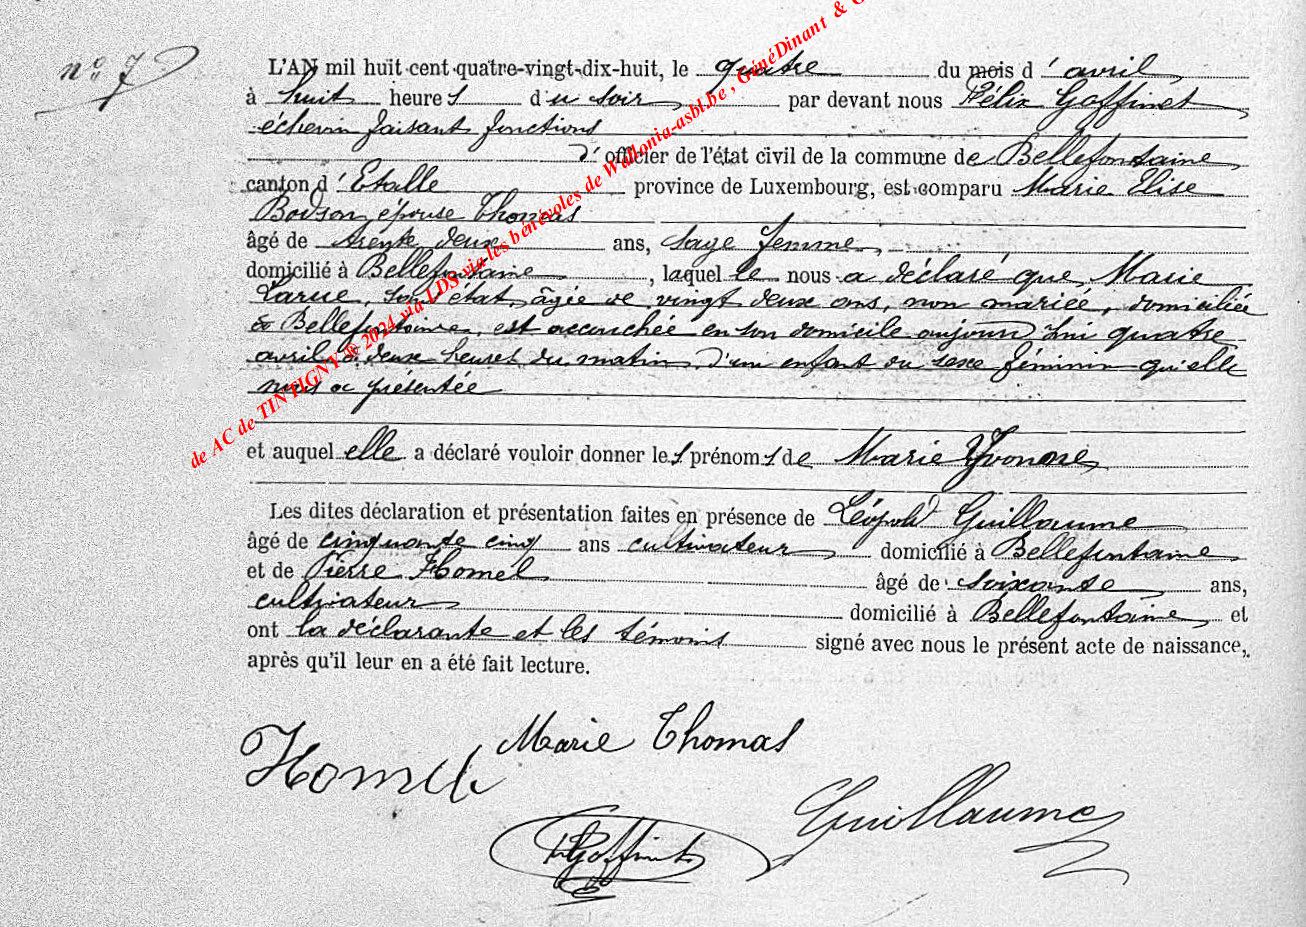 n° 7
L'AN mil huit cent quatre-vingt-dix-huit, le quatre du mois d'avril
à huit heures du soir, par devant nous Félix Goffinet
échevin faisant fonctions
d'officier de l'état civil de la commune de Bellefontaine,
canton d'Etalle province de Luxembourg, est comparu Marie Elise
Bodson, épouse Thomas
âgé de trente deux ans, sage femme,
domicilié à Bellefontaine, laquelle nous a déclaré que Marie
Larue, sans état, âgée de vingt deux ans, non mariée, domiciliée
à Bellefontaine, est accouchée en son domicile aujourd'hui quatre
avril à deux heures du matin, d'un enfant du sexe féminin qu'elle
nous a présentée
et auquel elle a déclaré vouloir donner les prénoms de Marie Yvonne,
Les dites déclaration et présentation faites en présence de Léopold Guillaume
âgé de cinquante cinq ans cultivateur domicilié à Bellefontaine
et de Pierre Homel âgé de soixante ans,
cultivateur domicilié à Bellefontaine, et
ont la déclarante et les témoins signé avec nous le présent acte de naissance,
après qu'il leur en a été fait lecture.
Marie Thomas
Homel
Guillaume
F Goffinet
de AC de TINTIGNY © 2024 via LDS via les bénévoles de Wallonia-asbl.be , GénéDinant &